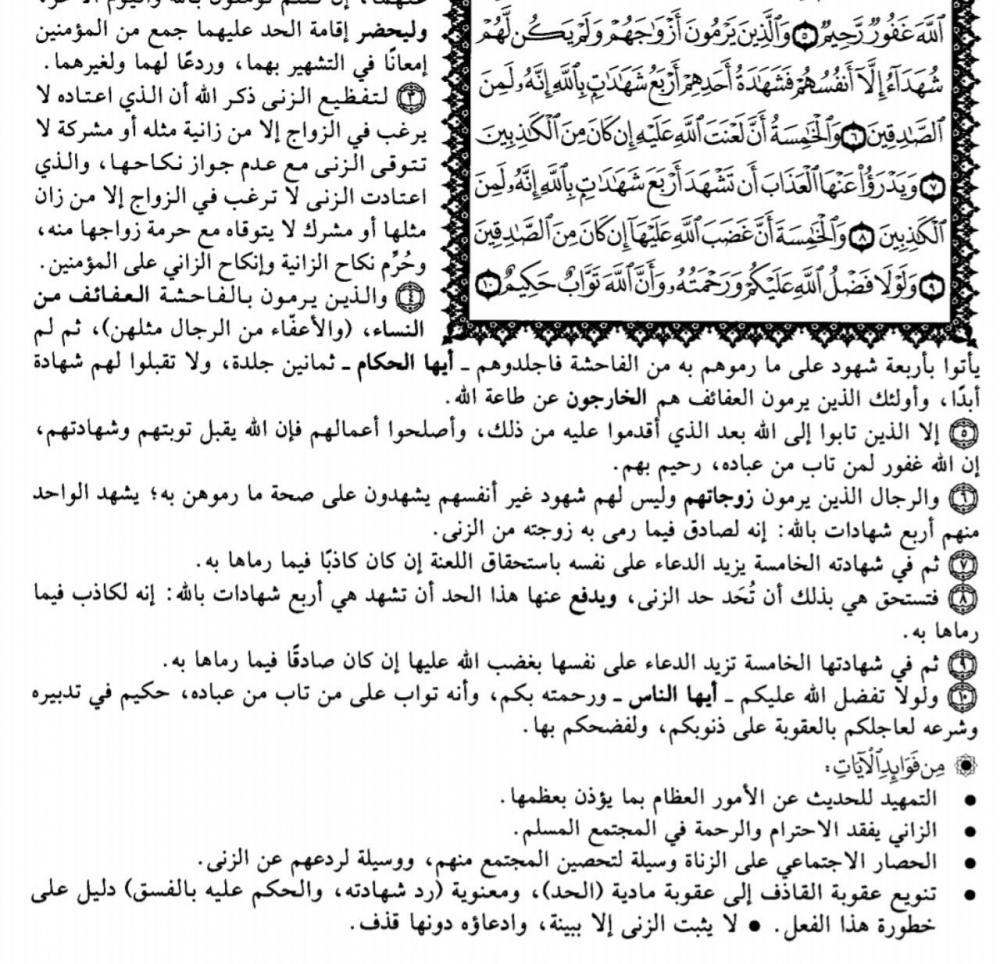 ٱللَّهَ غَفُورٌ رَّحِيمٌ ۝٥ وَٱلَّذِينَ يَرْمُونَ أَزْوَٰجَهُمْ وَلَمْ يَكُن لَّهُمْ
شُهَدَآءُ إِلَّآ أَنفُسُهُمْ فَشَهَٰدَةُ أَحَدِهِمْ أَرْبَعُ شَهَٰدَٰتٍۭ بِٱللَّهِ إِنَّهُۥ لَمِنَ
ٱلصَّٰدِقِينَ ۝٦ وَٱلْخَٰمِسَةُ أَنَّ لَعْنَتَ ٱللَّهِ عَلَيْهِ إِن كَانَ مِنَ ٱلْكَٰذِبِينَ
۝٧ وَيَدْرَؤُا۟ عَنْهَا ٱلْعَذَابَ أَن تَشْهَدَ أَرْبَعَ شَهَٰدَٰتٍۭ بِٱللَّهِ إِنَّهُۥ لَمِنَ
ٱلْكَٰذِبِينَ ۝٨ وَٱلْخَٰمِسَةَ أَنَّ غَضَبَ ٱللَّهِ عَلَيْهَآ إِن كَانَ مِنَ ٱلصَّٰدِقِينَ
۝٩ وَلَوْلَا فَضْلُ ٱللَّهِ عَلَيْكُمْ وَرَحْمَتُهُۥ وَأَنَّ ٱللَّهَ تَوَّابٌ حَكِيمٌ ۝١٠
وليحضر إقامة الحد عليهما جمع من المؤمنين
إمعانًا في التشهير بهما، وردعًا لهما ولغيرهما.
٣ لتفظيع الزنى ذكر الله أن الذي اعتاده لا
يرغب في الزواج إلا من زانية مثله أو مشركة لا
تتوقى الزنى مع عدم جواز نكاحها، والذي
اعتادت الزنى لا ترغب في الزواج إلا من زان
مثلها أو مشرك لا يتوقاه مع حرمة زواجها منه،
وحُرِّم نكاح الزانية وإنكاح الزاني على المؤمنين.
٤ والذين يرمون بالفاحشة العفائف من
النساء، (والأعفّاء من الرجال مثلهن)، ثم لم
يأتوا بأربعة شهود على ما رموهم به من الفاحشة فاجلدوهم ـ أيها الحكام ـ ثمانين جلدة، ولا تقبلوا لهم شهادة
أبدًا، وأولئك الذين يرمون العفائف هم الخارجون عن طاعة الله.
٥ إلا الذين تابوا إلى الله بعد الذي أقدموا عليه من ذلك، وأصلحوا أعمالهم فإن الله يقبل توبتهم وشهادتهم،
إن الله غفور لمن تاب من عباده، رحيم بهم.
٦ والرجال الذين يرمون زوجاتهم وليس لهم شهود غير أنفسهم يشهدون على صحة ما رموهن به؛ يشهد الواحد
منهم أربع شهادات بالله: إنه لصادق فيما رمى به زوجته من الزنى.
٧ ثم في شهادته الخامسة يزيد الدعاء على نفسه باستحقاق اللعنة إن كان كاذبًا فيما رماها به.
٨ فتستحق هي بذلك أن تُحَد حد الزنى، ويدفع عنها هذا الحد أن تشهد هي أربع شهادات بالله: إنه لكاذب فيما
رماها به.
٩ ثم في شهادتها الخامسة تزيد الدعاء على نفسها بغضب الله عليها إن كان صادقًا فيما رماها به.
١٠ ولولا تفضل الله عليكم ـ أيها الناس ـ ورحمته بكم، وأنه تواب على من تاب من عباده، حكيم في تدبيره
وشرعه لعاجلكم بالعقوبة على ذنوبكم، ولفضحكم بها.
مِن فَوَائِدِ ٱلْآيَاتِ:
• التمهيد للحديث عن الأمور العظام بما يؤذن بعظمها.
• الزاني يفقد الاحترام والرحمة في المجتمع المسلم.
• الحصار الاجتماعي على الزناة وسيلة لتحصين المجتمع منهم، ووسيلة لردعهم عن الزنى.
• تنويع عقوبة القاذف إلى عقوبة مادية (الحد)، ومعنوية (رد شهادته، والحكم عليه بالفسق) دليل على
خطورة هذا الفعل. • لا يثبت الزنى إلا ببينة، وادعاؤه دونها قذف.